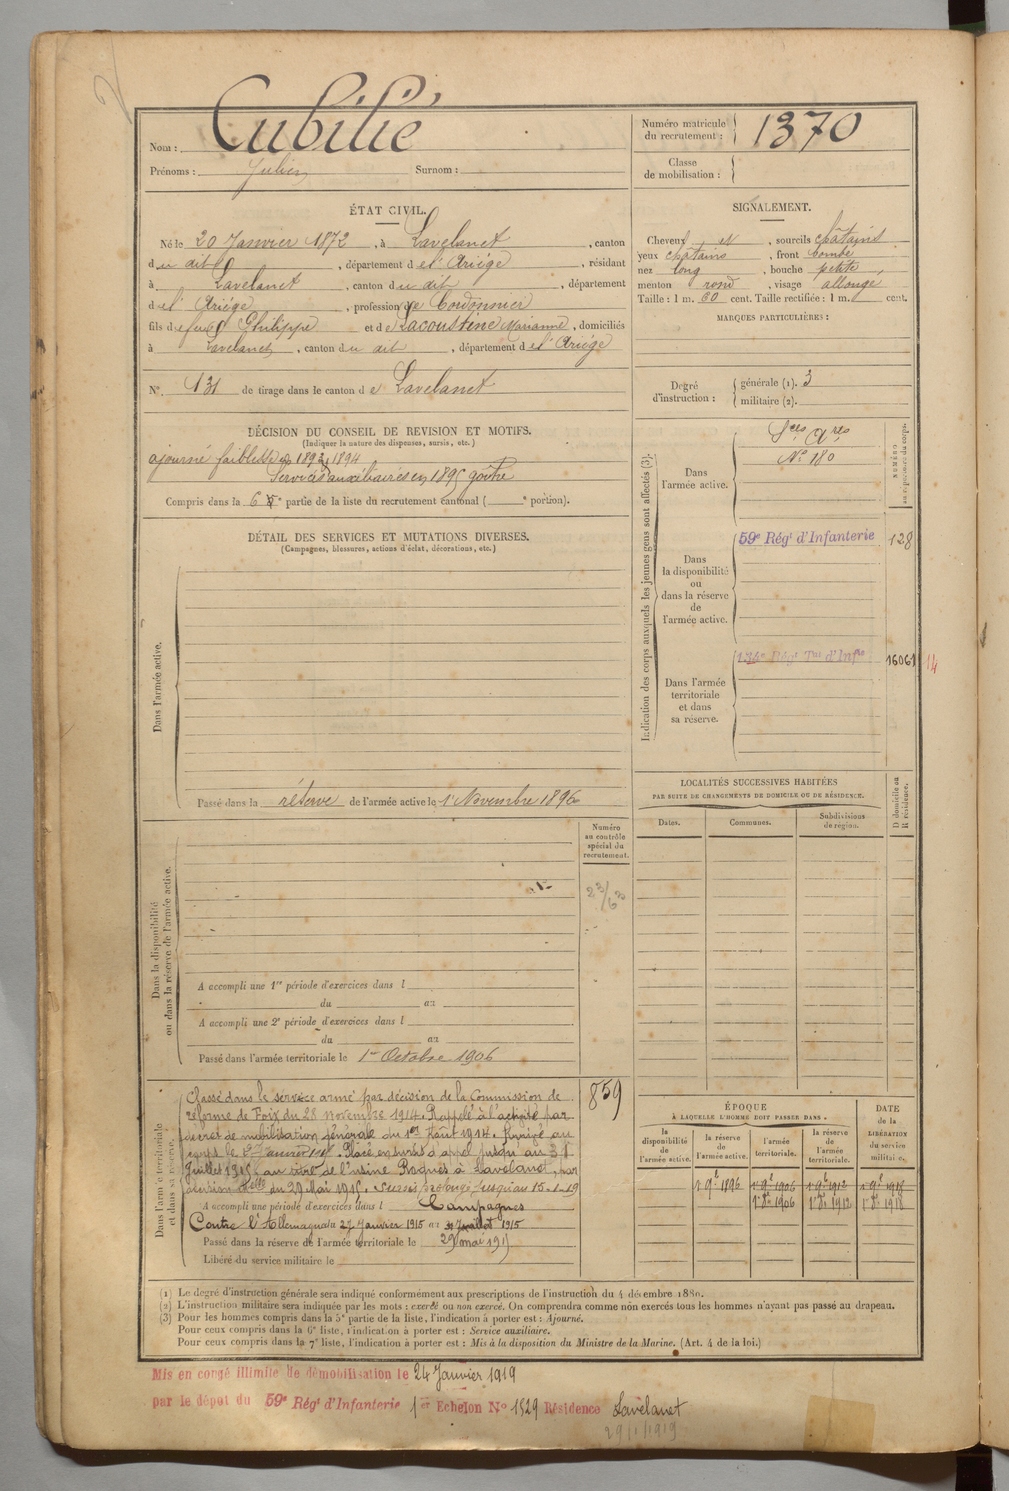 Nom : Cubilié
Prénoms : Julien Surnom :
Numéro matricule du recrutement : 1370
Classe de mobilisation :
ÉTAT CIVIL.
Né le 20 Janvier 1872, à Lavelanet, canton
du dit, département de l'Ariége, résidant
à Lavelanet, canton du dit, département
de l'Ariége, profession de Cordonnier
fils de feu Philippe et de Lacoustène Marianne, domiciliés
à Lavelanet, canton du dit, département de l'Ariége
N° 131 de tirage dans le canton de Lavelanet
SIGNALEMENT.
Cheveux et, sourcils châtains
yeux châtains, front bombé
nez long, bouche petite,
menton rond, visage allongé
Taille : 1 m. 60 cent. Taille rectifiée : 1 m. cent.
MARQUES PARTICULIÈRES :
Degré d'instruction : générale (1). 3
militaire (2).
DÉCISION DU CONSEIL DE REVISION ET MOTIFS.
(Indiquer la nature des dispenses, sursis, etc.)
ajourné faiblesse 1893, 1894
Services auxiliaires en 1895 goître
Compris dans la 6e partie de la liste du recrutement cantonal ( e portion).
DÉTAIL DES SERVICES ET MUTATIONS DIVERSES.
(Campagnes, blessures, actions d'éclat, décorations, etc.)
Dans l'armée active.
Passé dans la réserve de l'armée active le 1er Novembre 1896
Indication des corps auxquels les jeunes gens sont affectés (3).
NUMÉRO
au répertoire du corps.
Dans l'armée active.
Sces Ares
N° 180
Dans la disponibilité ou dans la réserve de l'armée active.
59e Régt d'Infanterie 128
Dans l'armée territoriale et dans sa réserve.
134e Régt Tal d'Infie 16061 14
LOCALITÉS SUCCESSIVES HABITÉES
PAR SUITE DE CHANGEMENTS DE DOMICILE OU DE RÉSIDENCE.
Dates. Communes. Subdivisions de région.
D domicile ou R résidence.
Numéro au contrôle spécial du recrutement.
Dans la disponibilité ou dans la réserve de l'armée active.
A accompli une 1re période d'exercices dans l
du au
A accompli une 2e période d'exercices dans l
du au
Passé dans l'armée territoriale le 1er Octobre 1906
Dans l'armée territoriale et dans sa réserve.
859
Classé dans le service armé par décision de la Commission de
réforme de Foix du 28 novembre 1914. Rappelé à l'activité par
décret de mobilisation générale du 1er Août 1914. Arrivé au
corps le 27 Janvier 1915. Placé en sursis d'appel jusqu'au 31
Juillet 1915, au titre de l'usine Roques à Lavelanet, par
décision Melle du 29 Mai 1915. Sursis prolongé jusqu'au 15-1-19
A accompli une période d'exercices dans l Campagnes
Contre l'Allemagne du 27 Janvier 1915 au 31 Juillet 1915
Passé dans la réserve de l'armée territoriale le 29 mai 1915
Libéré du service militaire le
ÉPOQUE
À LAQUELLE L'HOMME DOIT PASSER DANS
la disponibilité de l'armée active. la réserve de l'armée active. l'armée territoriale. la réserve de l'armée territoriale.
DATE de la LIBÉRATION du service militaire.
1er 9bre 1896 1er 9bre 1906 1er 9bre 1912 1er 9bre 1918
1er 8bre 1906 1er 8bre 1912 1er 8bre 1918
(1) Le degré d'instruction générale sera indiqué conformément aux prescriptions de l'instruction du 4 décembre 1880.
(2) L'instruction militaire sera indiquée par les mots : exercé ou non exercé. On comprendra comme non exercés tous les hommes n'ayant pas passé au drapeau.
(3) Pour les hommes compris dans la 5e partie de la liste, l'indication à porter est : Ajourné.
Pour ceux compris dans la 6e liste, l'indication à porter est : Service auxiliaire.
Pour ceux compris dans la 7e liste, l'indication à porter est : Mis à la disposition du Ministre de la Marine. (Art. 4 de la loi.)
Mis en congé illimité de démobilisation le 24 Janvier 1919
par le dépot du 59e Régt d'Infanterie 1er Echelon N° 1529 Résidence Lavelanet
29/1/1919